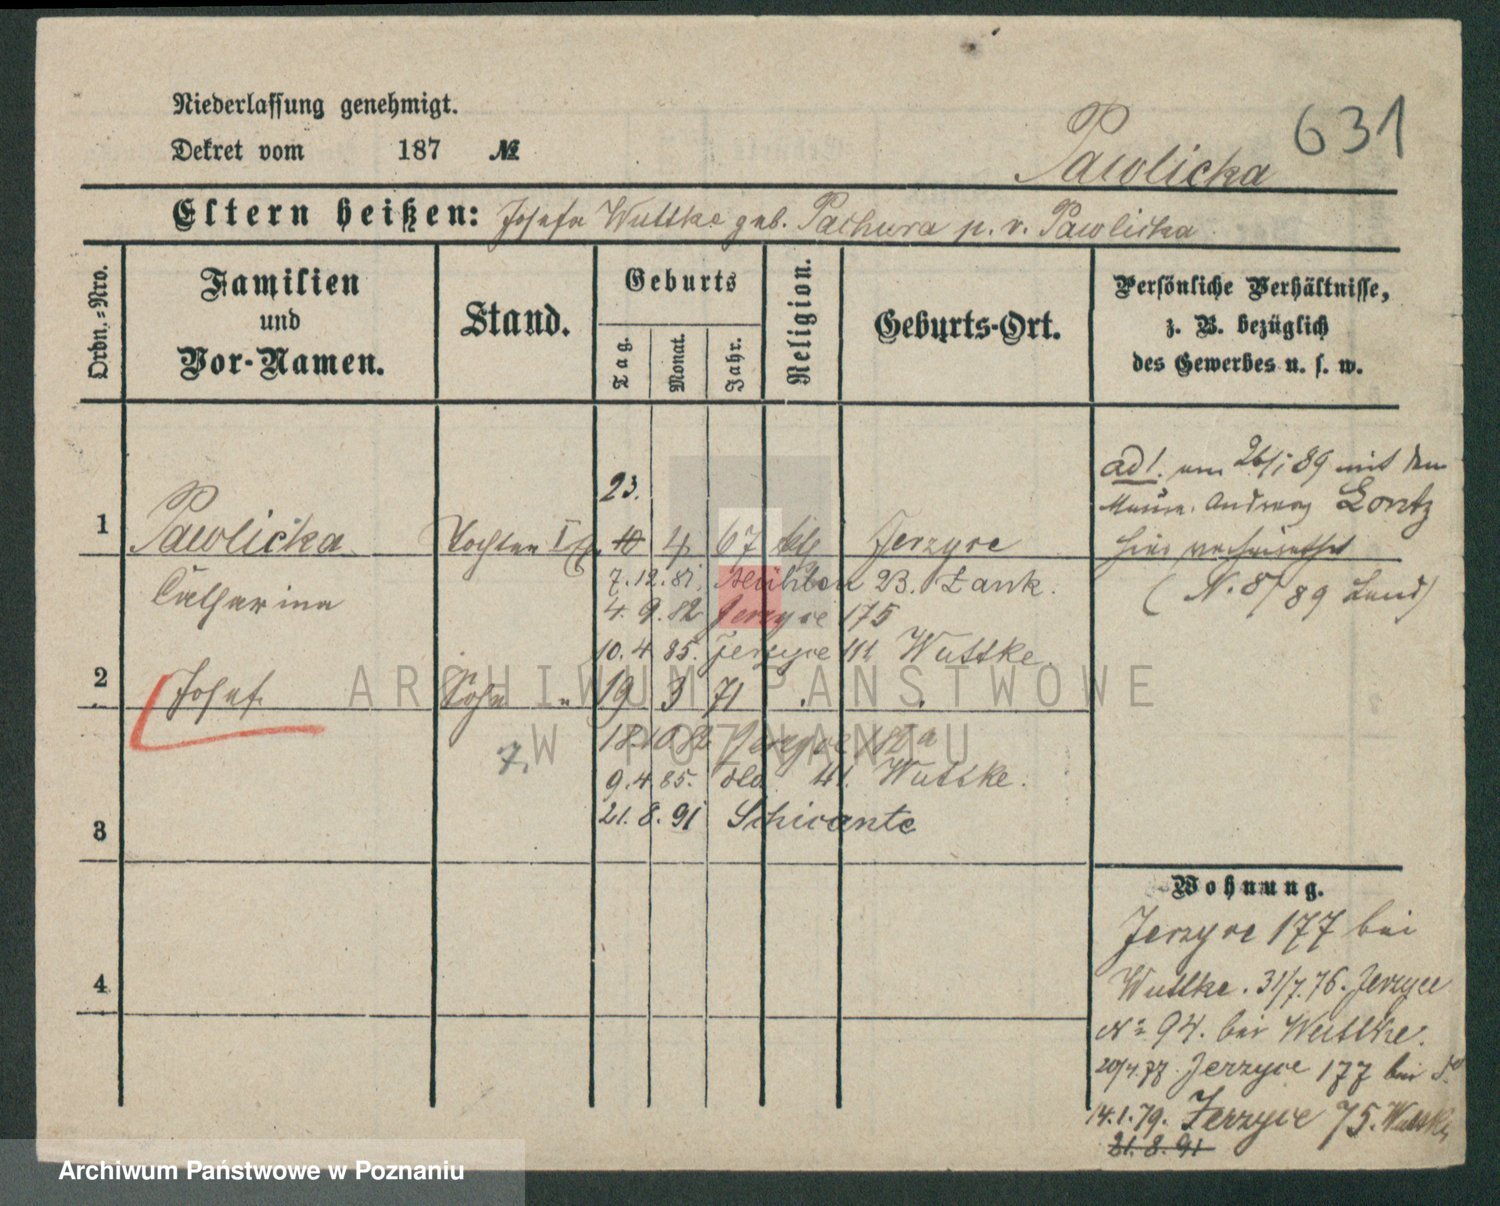 Niederlassung genehmigt.
Dekret vom 187 №
631
Pawlicka
Eltern heißen: Josefa Wuttke geb. Pachura p. v. Pawlicka
Ordn.=Nro.
Familien
und
Vor-Namen.
Stand.
Geburts
Tag.
Monat.
Jahr.
Religion.
Geburts-Ort.
Persönliche Verhältnisse,
z. B. bezüglich
des Gewerbes u. s. w.
23.
1 Pawlicka Tochter I 10 4 67 Jerzyce
Catharina
7.12.81 Mühlen 23. Lank.
4. 9. 82 Jerzyce 175
10. 4 85. Jerzyce 111 Wuttke.
2 Josef Sohn " 19 3 71
18.10 82 Jerzyce 182a
7.
9. 4. 85. dto 41. Wuttke.
21. 8. 91 Schwante
3
4
ad 1. am 26/1 89 mit dem
Maurer Andreas Lontz
hier verheirathet
(N. 8/89 Land)
Wohnung.
Jerzyce 177 bei
Wuttke. 31/7. 76. Jerzyce
No 94. bei Wuttke.
20/4.77 Jerzyce 177 bei
14.1.79. Jerzyce 75. Wuttke
21. 8. 91
ARCHIWUM PAŃSTWOWE
W POZNANIU
Archiwum Państwowe w Poznaniu